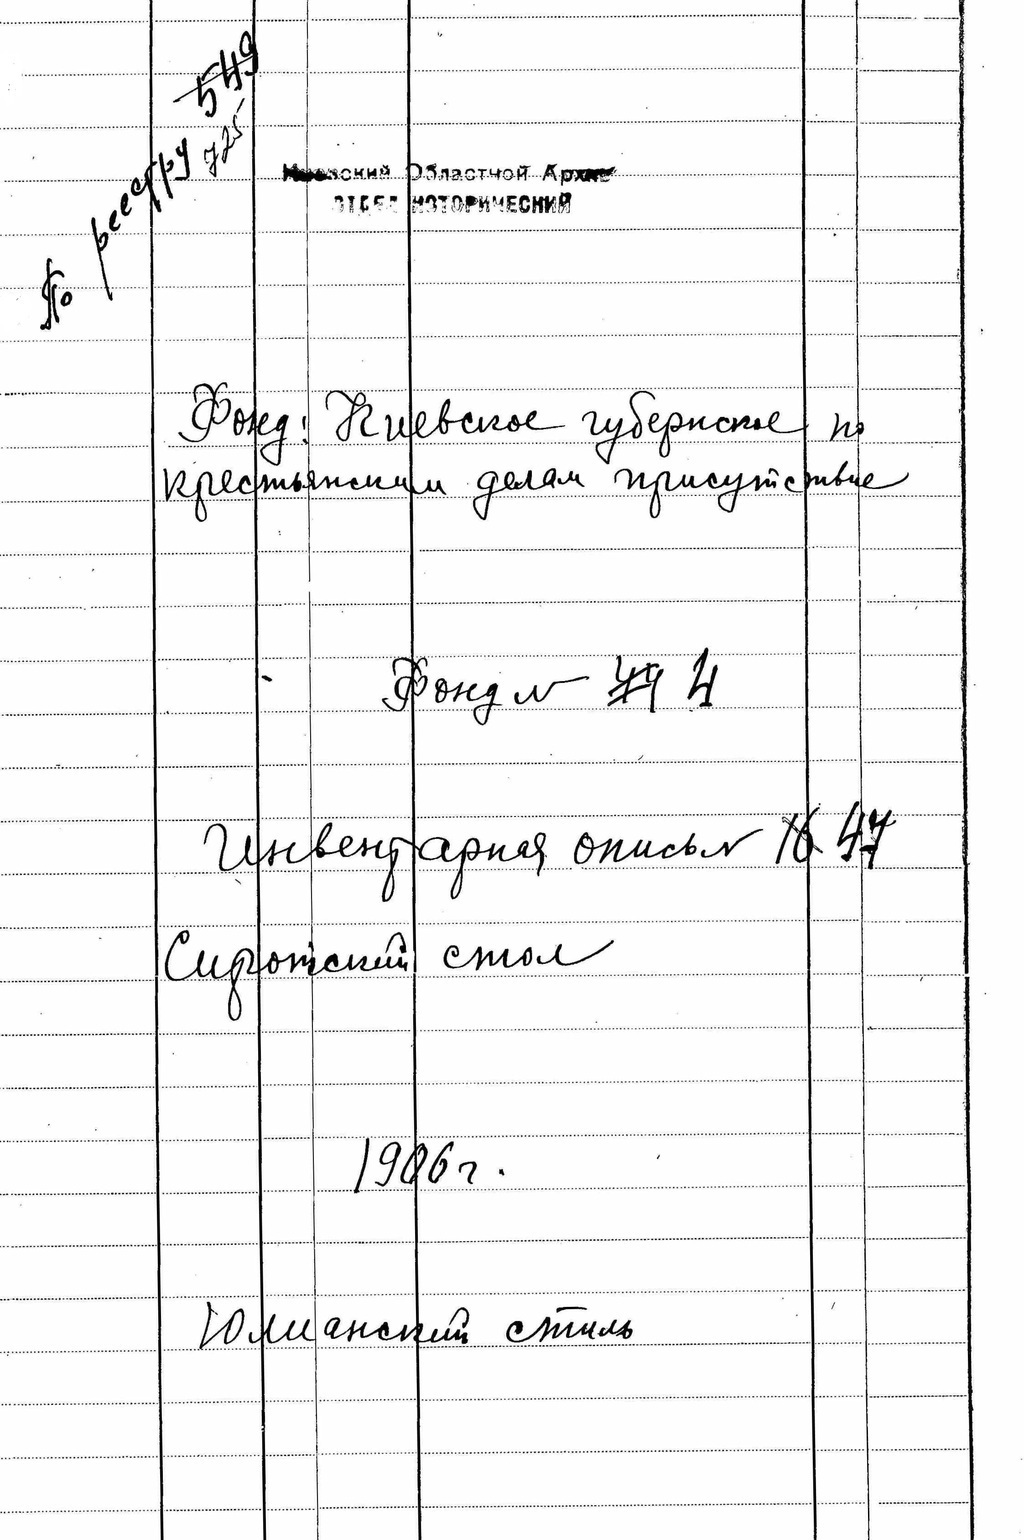 По реестру 549
725
Киевский Областной Архив
ОТДЕЛ ИСТОРИЧЕСКИЙ
Фонд: Киевское губернское по
крестьянским делам присутствие
Фонд № 4
Инвентарная опись № 16 47
Сиротский стол
1906 г.
Юлианский стиль